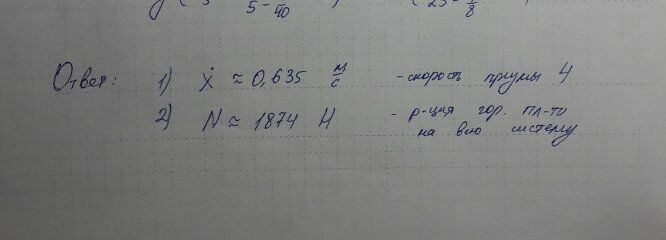 5 - 40 25 - 8
Ответ: 1) ẋ ≈ 0,635 м/с - скорость призмы 4
2) N ≈ 1874 Н - р-ция гор. пл-ти
на всю систему